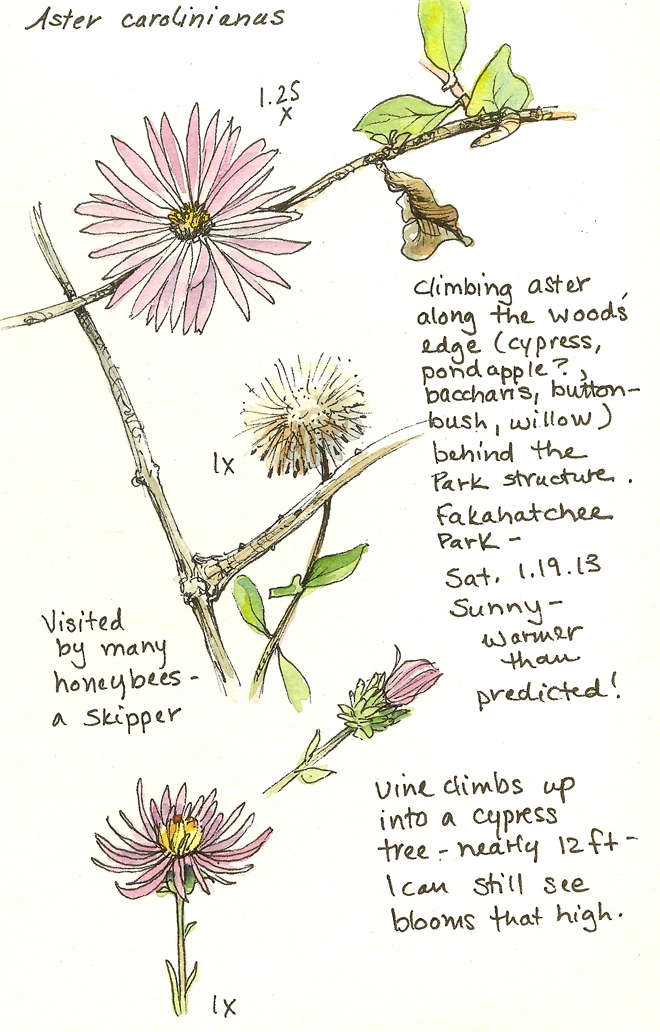 Aster carolinianus
1.25
x
Climbing aster
along the woods'
edge (cypress,
pond apple?,
baccharis, button-
bush, willow)
behind the
Park structure.
Fakahatchee
Park -
Sat. 1.19.13
Sunny -
warmer
than
predicted!
1x
Visited
by many
honeybees -
a skipper
Vine climbs up
into a cypress
tree - nearly 12 ft -
I can still see
blooms that high.
1x